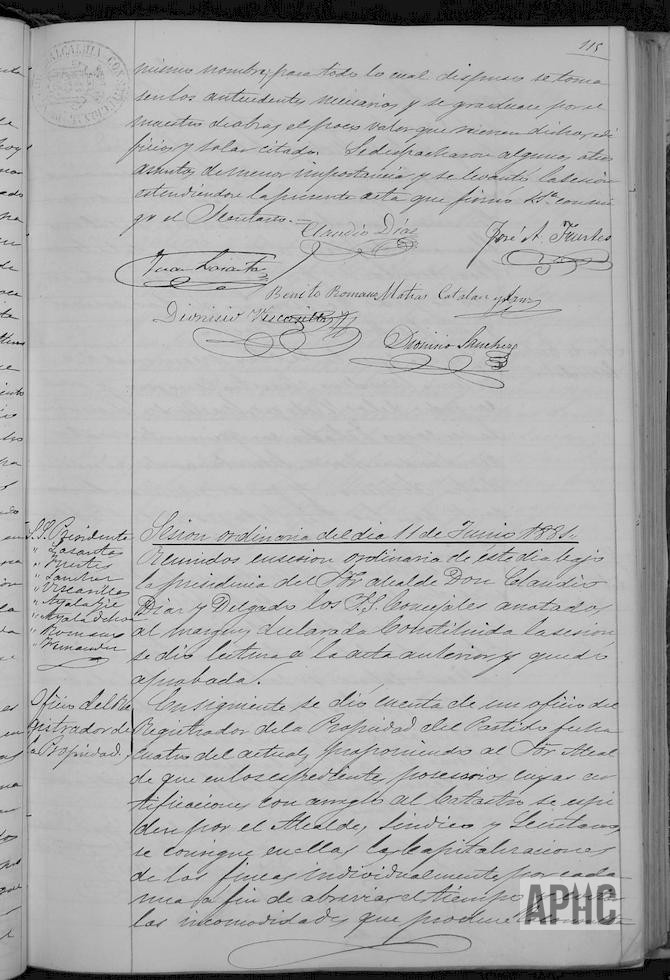 115
mismo nombre; para todo lo cual dispuso se toma
sen los antecedentes necesarios y se graduase por el
maestro de obras el precio valor que tienen dichos edi
ficios y solar citado. Se despacharon algunos otros
asuntos de menor importancia y se levantó la sesion
estendiendose la presente acta que firmó S.S.ª consmi
go el Secretario.
Claudio Diaz
José A. Fuertes
Juan Lasanta
Benito Romano Matias Catalan y Cruz
Dionisio Viscasillas
Dionisio Sanchez
S.S. Presidente
" Lasanta
" Fuertes
" Sanchez
" Viscasillas
" Romano
" Fernandez
Sesion ordinaria del dia 11 de Junio 1884.
Reunidos en sesion ordinaria de este dia bajo
la presidencia del Sor Alcalde Don Claudio
Diaz y Delgado los S.S. Concejales anotados
al margen declarada constituida la sesion
se dió lectura a la acta anterior y quedó
aprobada.
Oficio del Re
gistrador de
la Propiedad.
Consiguiente se dió cuenta de un oficio del
Registrador de la Propiedad del Partido fecha
cuatro del actual, proponiendo al Sor Alcal
de que en los espedientes posesorios cuyas cer
tificaciones con arreglo al Catastro se espi
den por el Alcalde, Sindico y Secretario,
se consigne en ellas las Capitalizaciones
de las fincas individualmente por cada
una a fin de abreviar el tiempo y evitar
las incomodidades que produce
APHC